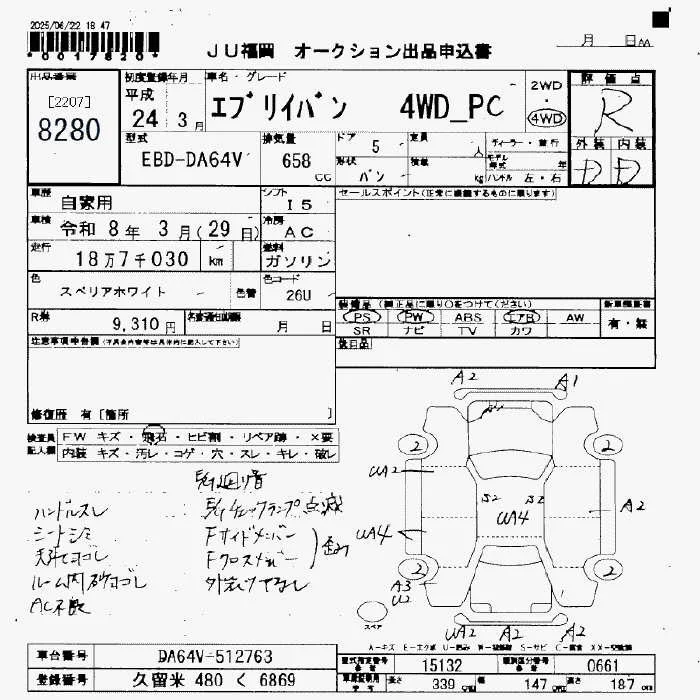 2025/06/22 18 47
*00017820*
JU福岡 オークション出品申込書
月 日
出品番号
[2207]
8280
初度登録年月
平成
24 3月
車名・グレード
エブリイバン 4WD_PC
2WD
・
4WD
評価点
R
外装 内装
D D
型式
EBD-DA64V
排気量
658 CC
ドア 5
定員 人
形状 バン
積載 kg
ディーラー・並行
モデル年式 年
ハンドル 左・右
車歴
自家用
シフト
I5
セールスポイント(正常に機能するものに限ります)
車検
令和 8年 3月(29日)
冷房
AC
走行
18万7千030 km
燃料
ガソリン
色
スペリアホワイト
色替
色コード
26U
R券
9,310 円
名義変更期限
月 日
装備品(純正品に限り○をつけてください)
新車保証書
PS PW ABS エアB AW
有・無
SR ナビ TV カワ
後日品
注意事項申告欄(不具合内容等は具体的に記入して下さい)
修復歴 有[箇所 ]
検査員記入欄
FW キズ・飛石・ヒビ割・リペア跡・×要
内装 キズ・汚レ・コゲ・穴・スレ・キレ・破レ
ハンドルスレ
シートシミ
天張ヨゴレ
ルーム内砂ヨゴレ
AC不良
E/Gチェックランプ点滅
Fサイドメンバー
Fクロスメンバー
歪ミ
A2 A1
2 2
UA2
S2 S2
UA4
A2
UA4
2 2
A3
U2
スペア
UA2 A2 A2
A-キズ E-エクボ
車台番号
DA64V-512763
登録番号
久留米 480 く 6869
型式指定番号
15132
類別区分番号
0661
長さ 339 cm
幅 147 cm
高さ 187 cm